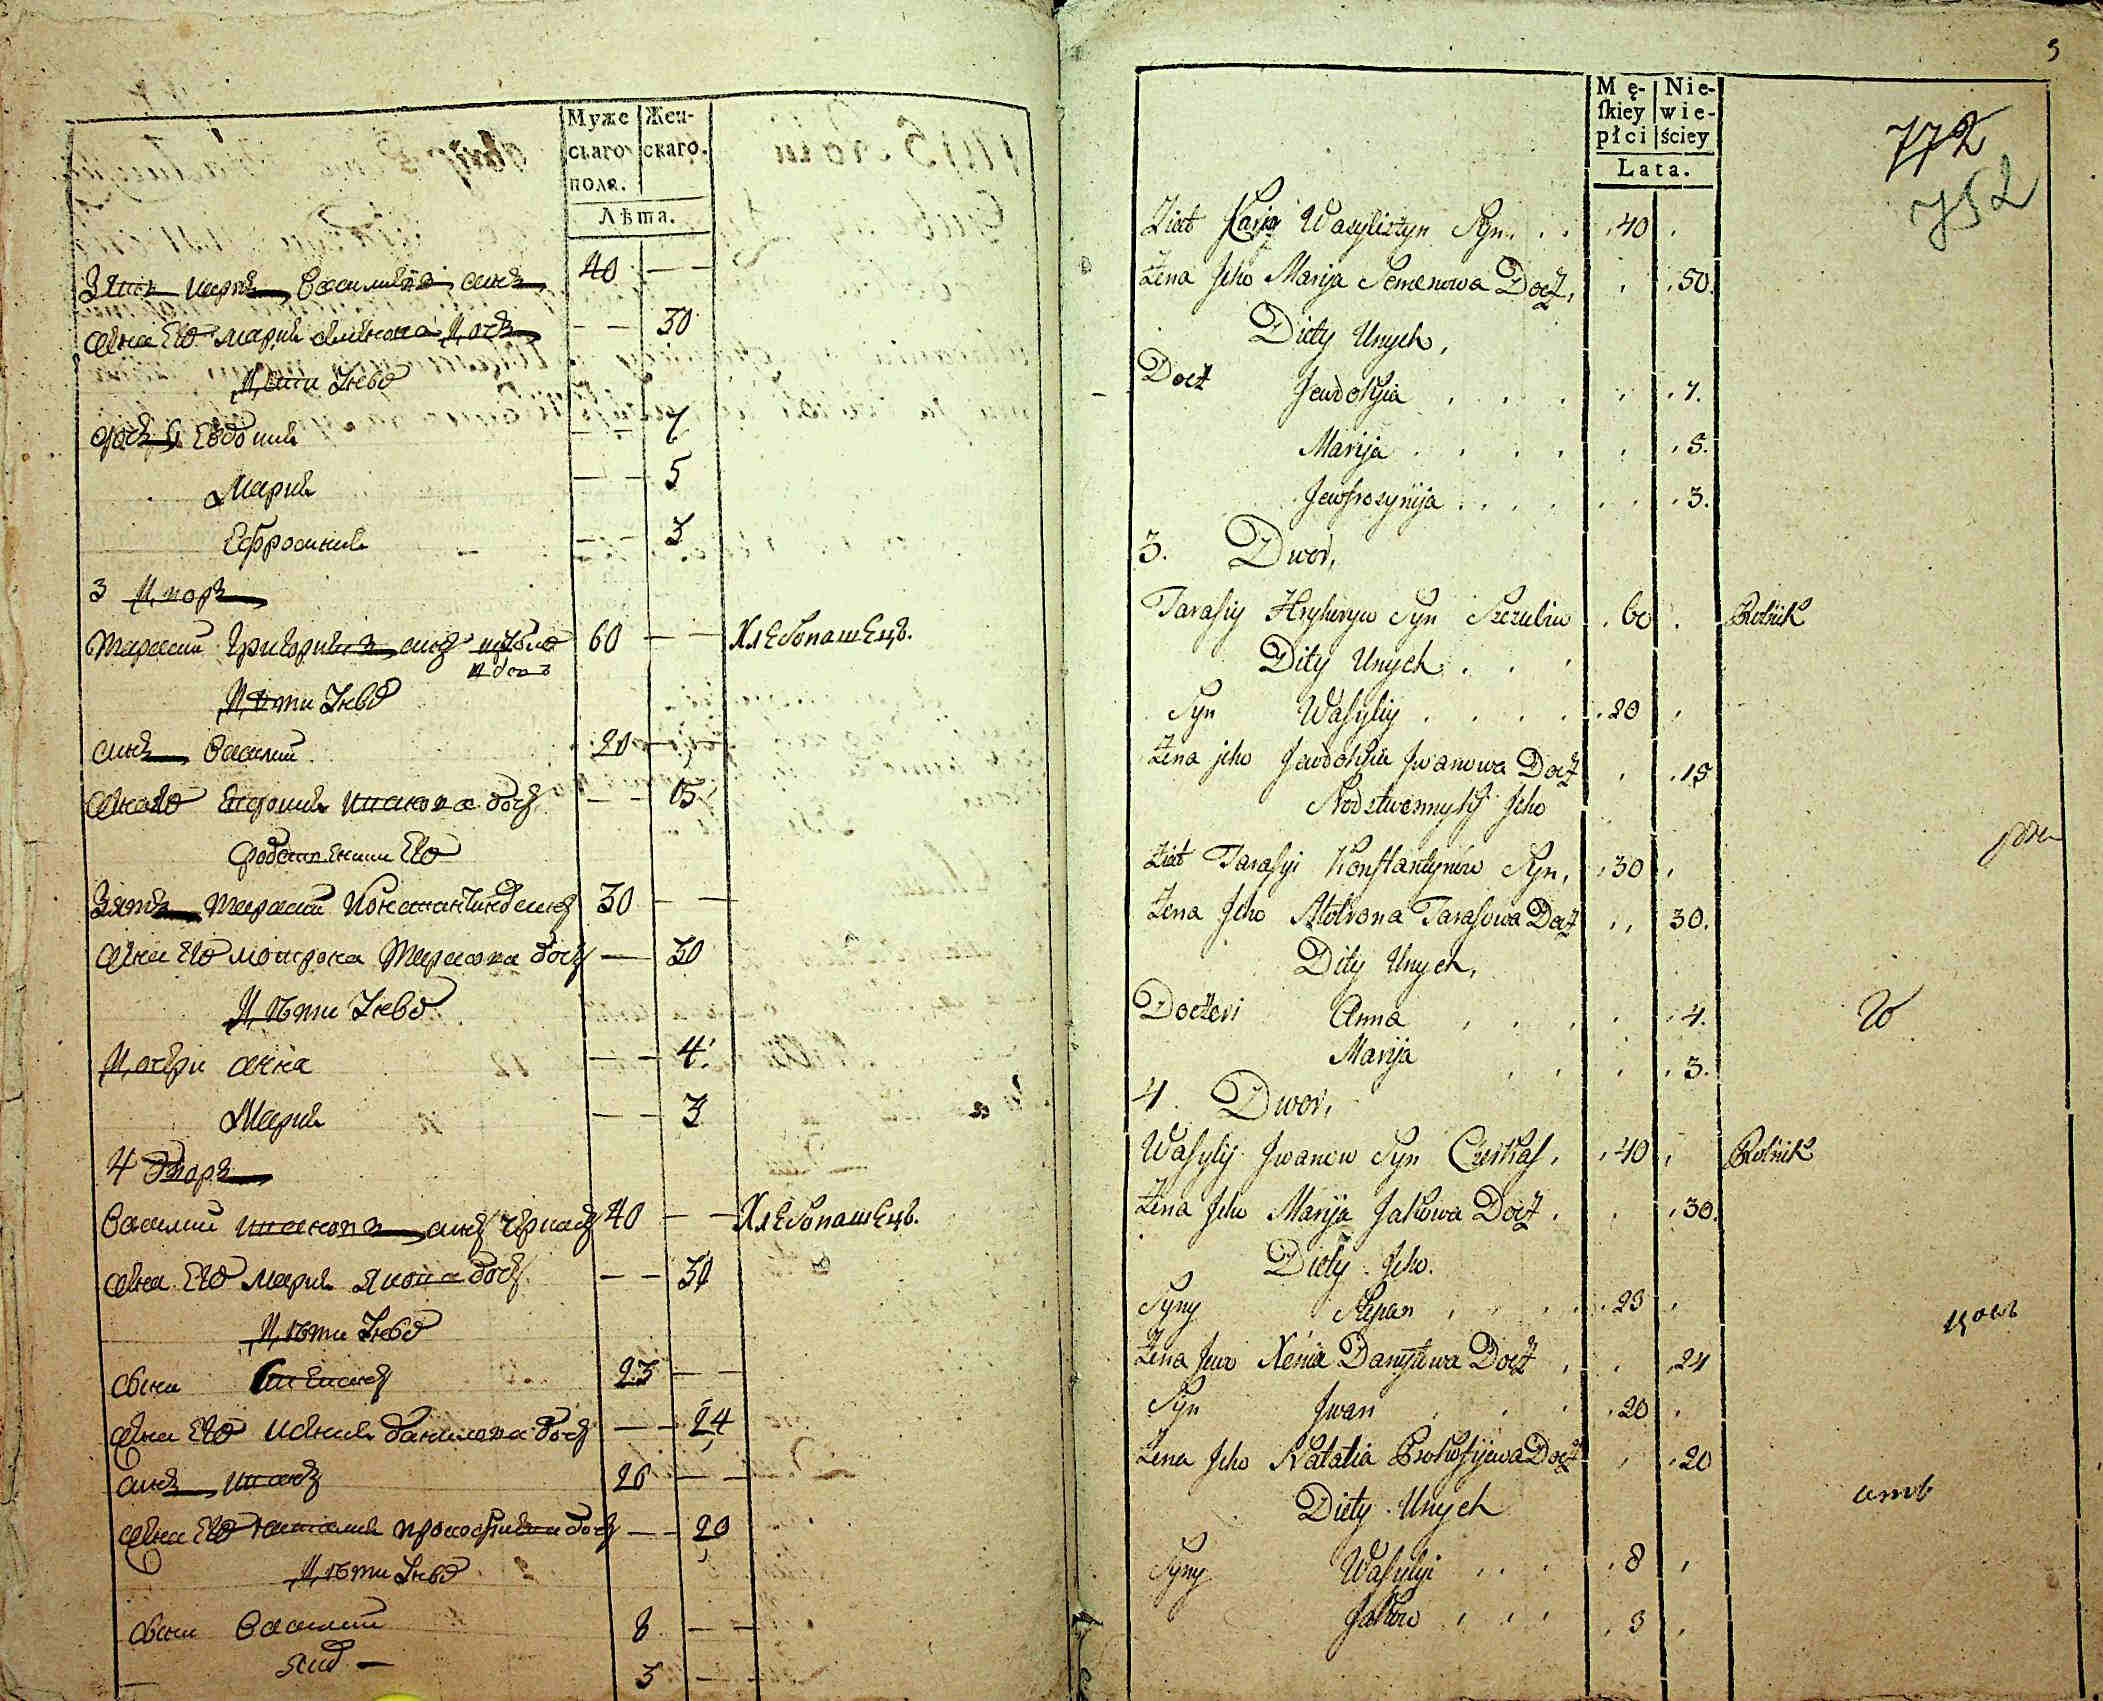 Муже
скаго
поля.
Жен-
скаго.
Лѣта.
Зять Карпъ Василиевъ синъ 40 — —
жена Его Мария Семенова Дочъ — — 30
Дети Унихъ
Дочъ Евдокия — — 7
Мария — — 5
Ефросиния — — 3
3 Дворъ
Тарасий Григориевъ синъ 60 — — Хлебопашецъ.
Дѣти Унихъ
синъ Василий 20 — —
жена Его Иванова дочъ — — 15
родственики Его
Зять Тарасий Константиновъ синъ 30 — —
жена Его Мотрона Тарасова дочъ — 30
Дѣти Унихъ
Дочери Анна — — 4
Мария — — 3
4 Дворъ
Василий Ивановъ синъ Черкасъ 40 — — Хлебопашецъ.
жена Его Мария Якова дочъ — — 30
Дѣти Унихъ
сини Степанъ 23 — —
жена Его Ксения Данилова дочъ — — 24
синъ Иванъ 20 — —
жена Его Наталия Прокофиева дочъ — — 20
Дѣти Унихъ
сини Василий 8 — —
Яковъ — 3 — —
5
Mę-
ſkiey
płci
Nie-
wie-
ściey
Lata.
772
752
Ziat Karp Wasyliszyn Syn. . . . 40 .
Żena Jeho Marija Semenowa Docz, . . 50.
Diety Unych,
Docz Jewdokyia . . . . . 7.
Marija . . . . . . 5.
Jewfrosynija . . . . . . . 3.
3. Dwor,
Tarasiy Hryhoryw Syn Szczubiw . 60 . Rolnik
Dity Unych . . .
Syn Wasyliy . . . . . 20 .
Żena jeho Jewdokyia Jwanowa Docz . . 15
Rodztwennyky Jeho
Ziat Tarasyi Konstantynów Syn, . 30 .
Żena Jeho Motrona Tarasowa Docz . , 30.
Dity Unych,
Doczeri Anna . . . . . 4.
Marija . . . . 3.
4 Dwor,
Wasyliy Jwanow Syn Czerkas, . 40 . Rolnik
Żena Jeho Marija Jakowa Docz . . . 30.
Diety Jeho.
Syny Stepan . . . . . 23 .
Żena Jeho Xenia Danyłowa Docz , . . 24
Syn Jwan . . . . 20 .
Żena Jeho Natalia Prokofijewa Docz . . 20
Diety Unych
Syny Wasylyi . . . . 8 .
Jakow . . . . 3 .